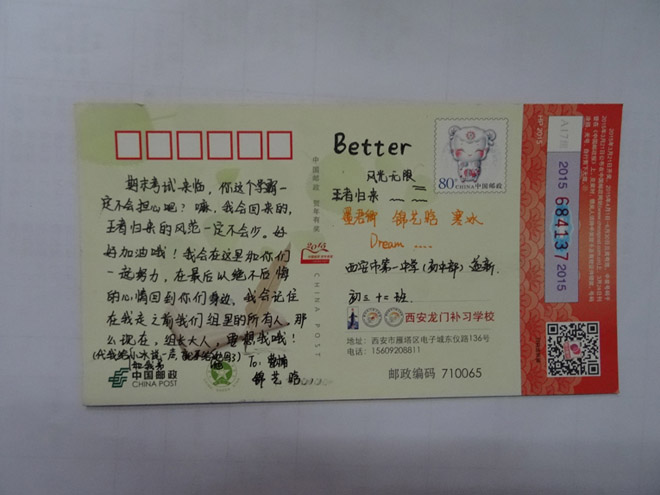 期末考试来临，你这个学霸一
定不会担心吧？嘛，我会回来的，
王者归来的风范一定不会少。好
好加油哦！我会在这里和你们
一起努力，在最后从绝不后悔
的心情回到你们身边，我会记住
在我走之前我们组里的所有人。那
么现在，组长大人，要想我哦！
To:
锦艺晗
中国邮政
CHINA POST
中国邮政 贺年有奖
CHINA POST
Better
风光无限
王者归来
锦艺晗 寒冰
Dream ....
西安市第一中学(初中部)
初三十二班
西安龙门补习学校
地址：西安市雁塔区电子城东仪路136号
电话：15609208811
邮政编码 710065
80分
CHINA 中国邮政
HP 2015
2015 684137 2015